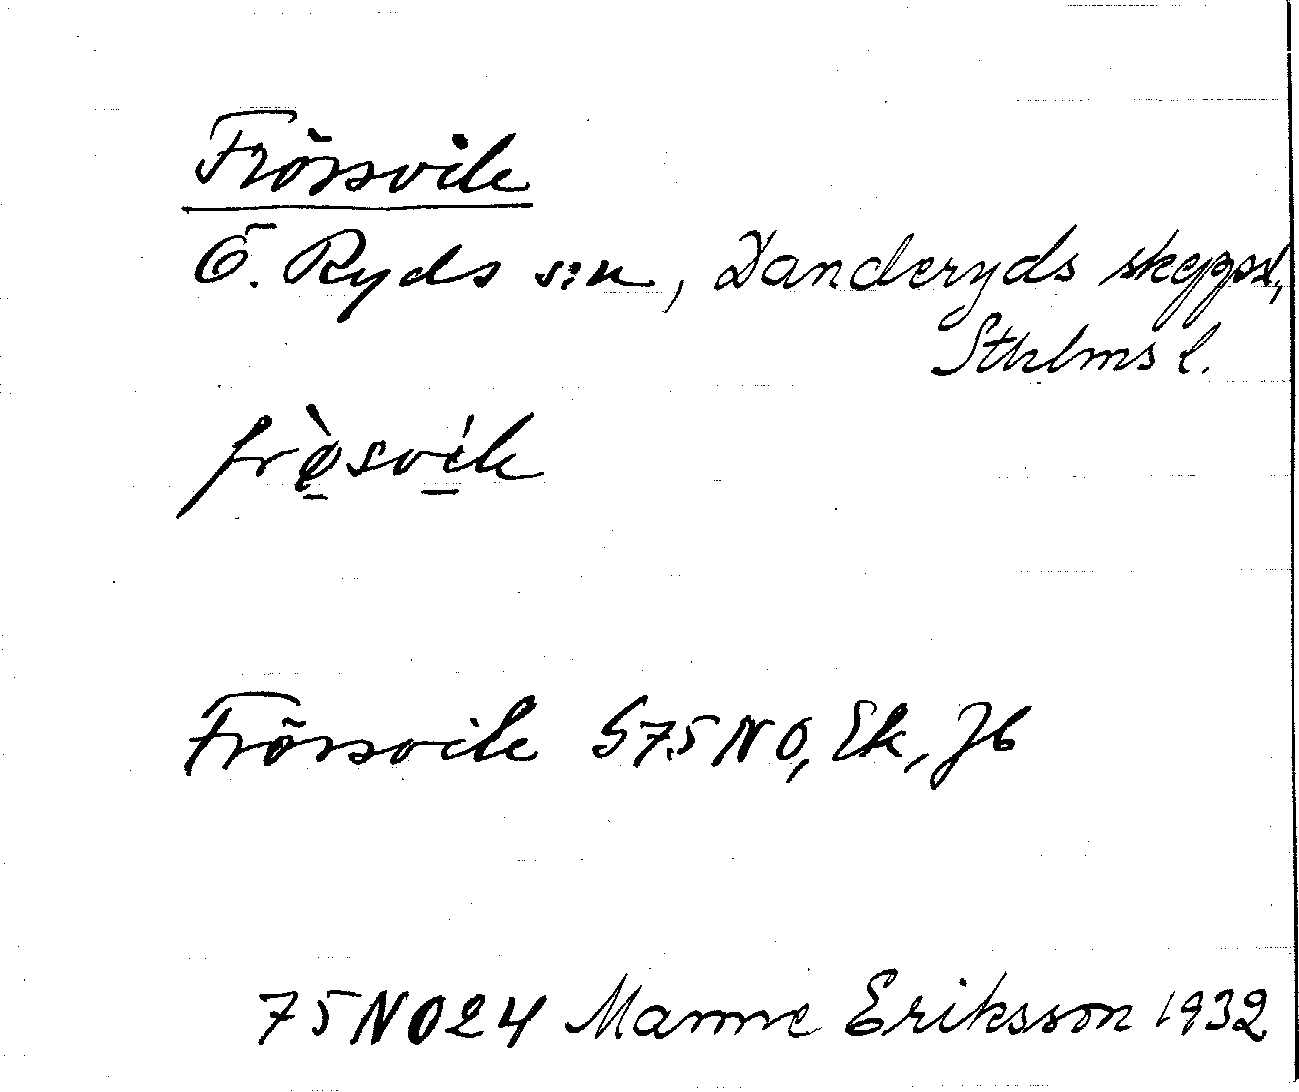 Frösvik
Ö. Ryds sn, Danderyds skeppsl,
Sthlms l.
frø̀svík
Frösvik S75NO, Ek, Jb
75NO24 Manne Eriksson 1932